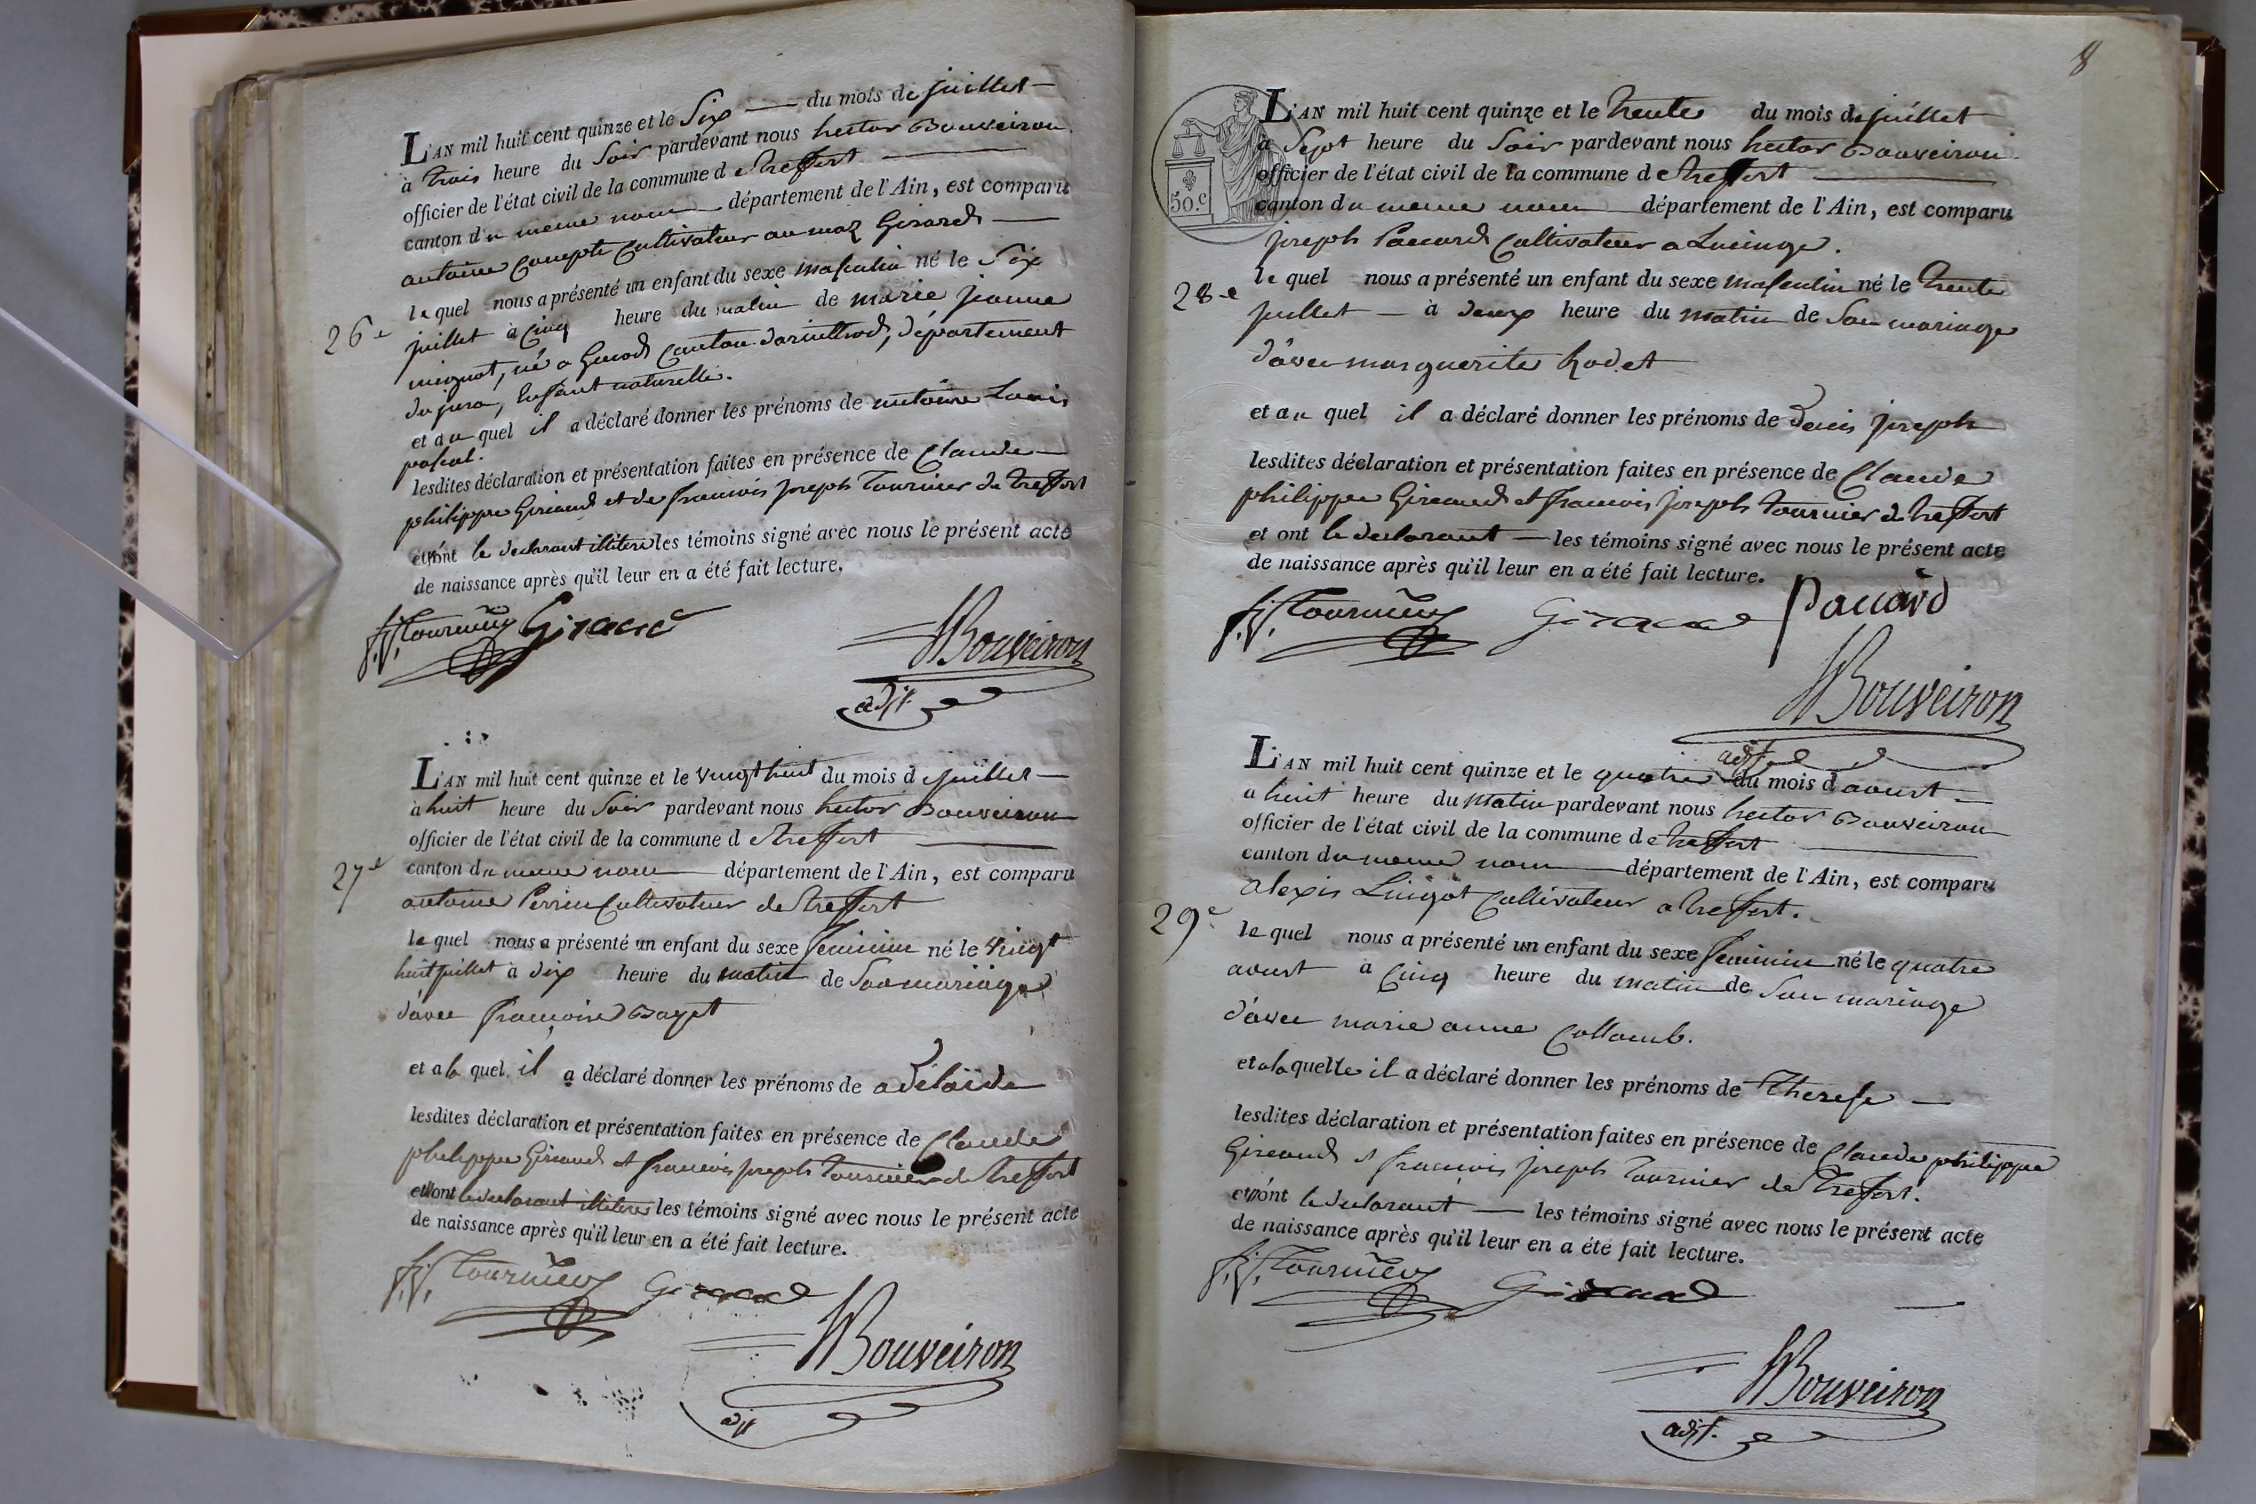 L'AN mil huit cent quinze et le Six du mois de juillet
à trois heure du Soir pardevant nous hector Bouveiron
officier de l'état civil de la commune de treffort
canton du meme nom département de l'Ain, est comparu
antoine Compte Cultivateur au maz Girard
le quel nous a présenté un enfant du sexe masculin né le Six
26e
juillet à Cinq heure du matin de marie jeanne
mignot, né a Canton darinthod, département
du jura, Enfant naturelle.
et au quel il a déclaré donner les prénoms de antoine Louis
pascal.
lesdites déclaration et présentation faites en présence de Claude
philippe Giraud et de francois joseph Tournier de treffort
et ont le declarant illitere les témoins signé avec nous le présent acte
de naissance après qu'il leur en a été fait lecture.
f.j. Tournier Giraud
HBouveiron
adjt.
L'AN mil huit cent quinze et le vingt huit du mois de juillet
à huit heure du Soir pardevant nous hector Bouveiron
officier de l'état civil de la commune de treffort
27e
canton du meme nom département de l'Ain, est comparu
antoine Perrin Cultivateur de treffort
le quel nous a présenté un enfant du sexe feminin né le vingt
huit juillet à dix heure du matin de Son mariage
d'avec francoise Bayet
et a la quel il a déclaré donner les prénoms de adélaïde
lesdites déclaration et présentation faites en présence de Claude
philippe Giraud et francois joseph Tournier de treffort
et ont le declarant illitere les témoins signé avec nous le présent acte
de naissance après qu'il leur en a été fait lecture.
f.j. Tournier Giraud
HBouveiron
adjt
8
L'AN mil huit cent quinze et le trente du mois de juillet
à Sept heure du Soir pardevant nous hector Bouveiron
officier de l'état civil de la commune de treffort
50.c
canton du meme nom département de l'Ain, est comparu
joseph Paccard Cultivateur a Lucinge.
le quel nous a présenté un enfant du sexe masculin né le trente
28e
juillet à deux heure du matin de Son mariage
d'avec marguerite Rodet
et au quel il a déclaré donner les prénoms de Denis joseph
lesdites déclaration et présentation faites en présence de Claude
philippe Giraud et francois joseph Tournier de treffort
et ont le declarant les témoins signé avec nous le présent acte
de naissance après qu'il leur en a été fait lecture.
f.j. Tournier Giraud Paccard
HBouveiron
adjt
L'AN mil huit cent quinze et le quatre du mois d aoust
a huit heure du matin pardevant nous hector Bouveiron
officier de l'état civil de la commune de treffort
canton du meme nom département de l'Ain, est comparu
alexis Lingot Cultivateur a treffort.
29e
le quel nous a présenté un enfant du sexe feminin né le quatre
aoust à Cinq heure du matin de Son mariage
d'avec marie anne Collomb.
et a la quelle il a déclaré donner les prénoms de therese
lesdites déclaration et présentation faites en présence de Claude philippe
Giraud et francois joseph Tournier de treffort.
et ont le declarant les témoins signé avec nous le présent acte
de naissance après qu'il leur en a été fait lecture.
f.j. Tournier Giraud
HBouveiron
adjt.